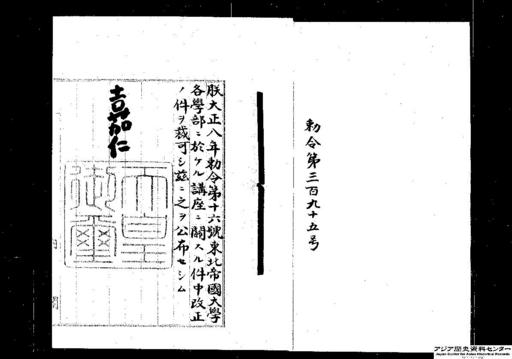 勅令第三百九十五号
朕大正八年勅令第十六號東北帝國大學
各學部ニ於ケル講座ニ關スル件中改正
ノ件ヲ裁可シ茲ニ之ヲ公布セシム
嘉仁
天皇
御璽
アジア歴史資料センター
Japan Center for Asian Historical Records